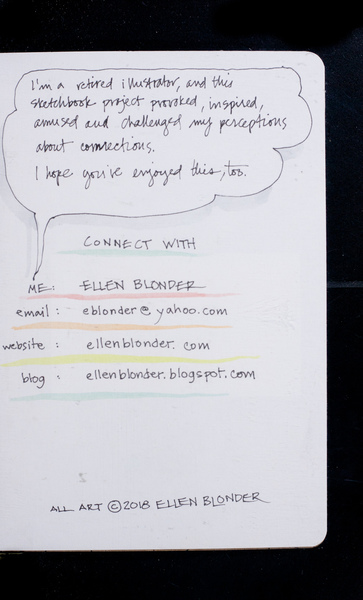 I'm a retired illustrator, and this
sketchbook project provoked, inspired,
amused and challenged my perceptions
about connections.
I hope you've enjoyed this, too.
CONNECT WITH
ME: ELLEN BLONDER
email: eblonder@yahoo.com
website: ellenblonder.com
blog: ellenblonder.blogspot.com
ALL ART ©2018 ELLEN BLONDER